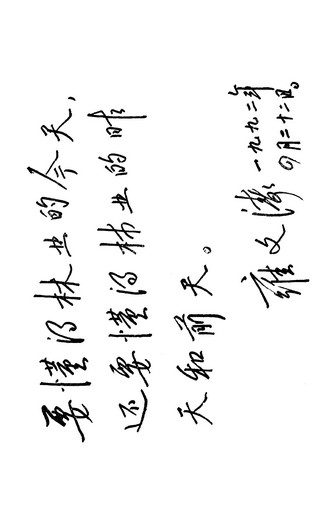 要懂得林业的今天，
还要懂得林业的昨
天和前天。
雍文涛
一九九二年
四月二十二日。